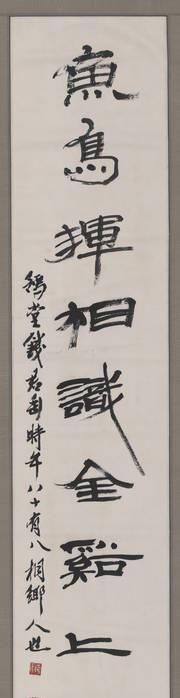 魚鳥揮相識全谿上
豫堂錢君匋時年八十有八桐鄉人也